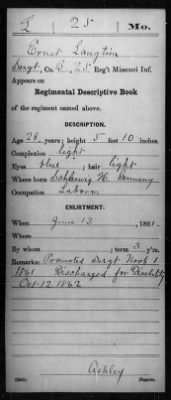 L 25 Mo.
Ernst Langtim
Sergt., Co. B, 25 Reg't Missouri Inf.
Appears on
Regimental Descriptive Book
of the regiment named above.
DESCRIPTION.
Age 28 years; height 5 feet 10 inches
Complexion light
Eyes blue; hair light
Where born Schleswig H. Germany
Occupation Laborer
ENLISTMENT.
When June 13, 1861.
Where
By whom ; term 3 y'rs.
Remarks: Promoted Sergt Nov. 1
1861 Discharged for Disability
Oct. 12 1862
Ashley
Copyist.